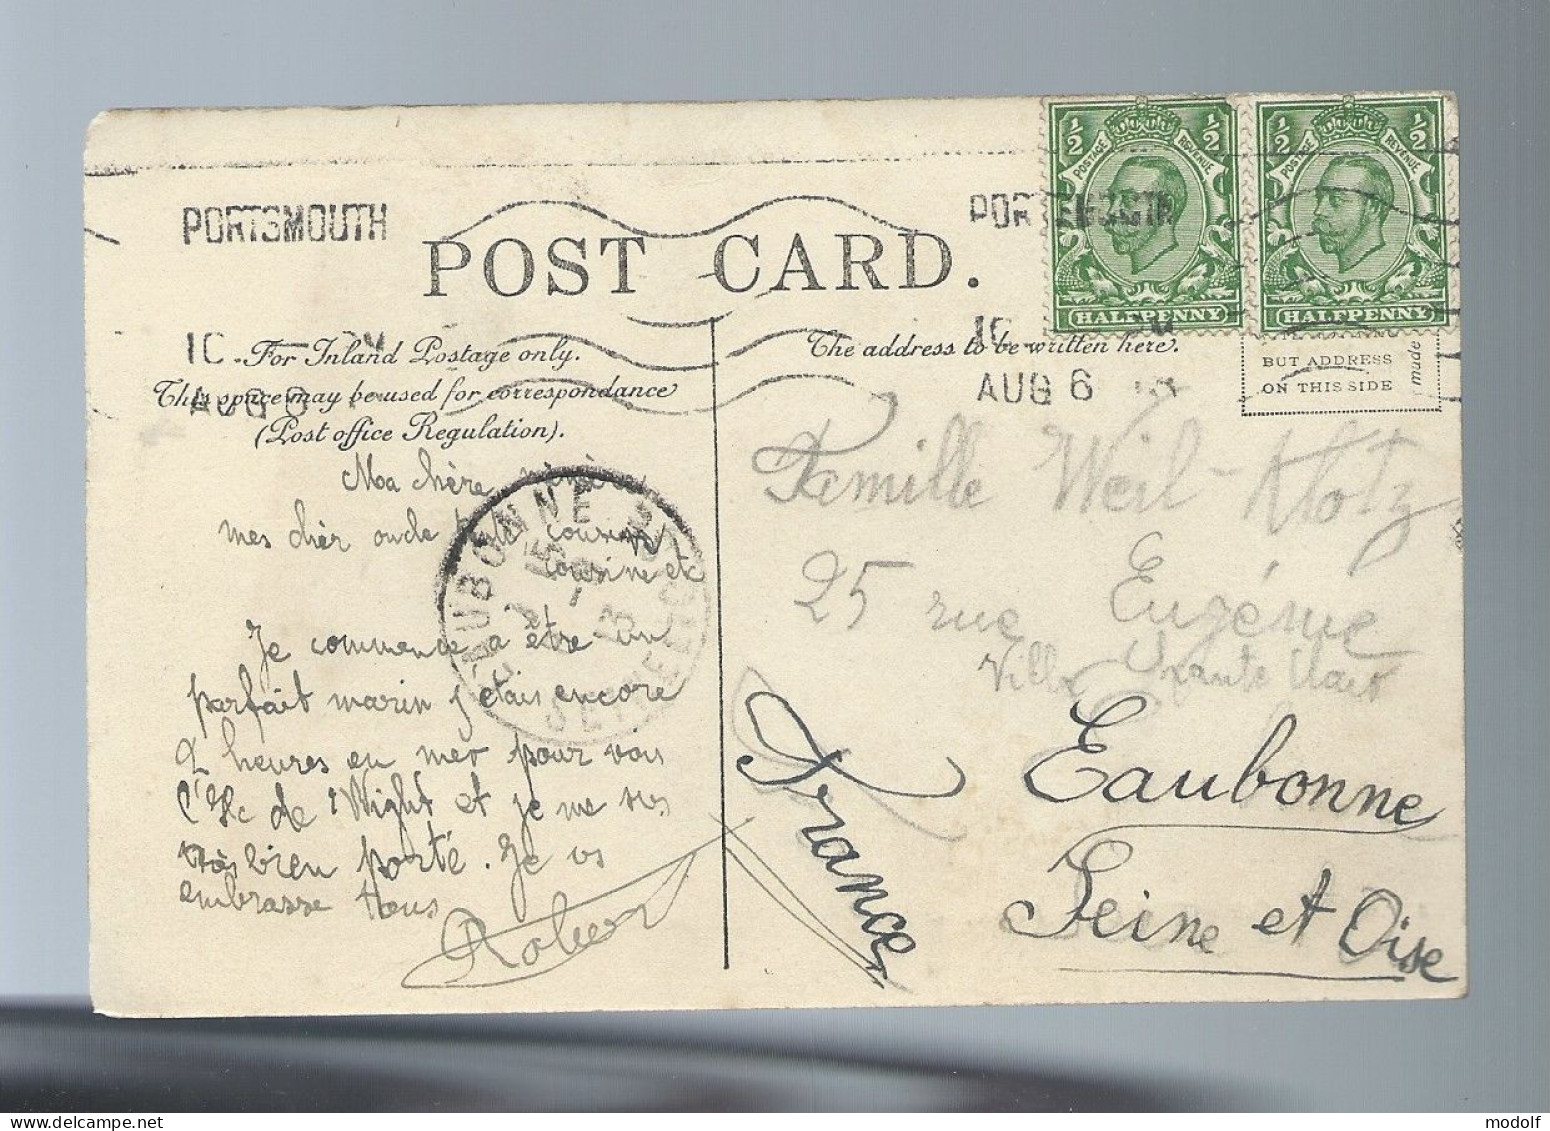 PORTSMOUTH
POST CARD.
AUG 6
For Inland Postage only.
This space may be used for correspondance
(Post office Regulation).
The address to be written here.
½ ½
POSTAGE REVENUE
HALFPENNY
½ ½
POSTAGE REVENUE
HALFPENNY
BUT ADDRESS
ON THIS SIDE
made
EAUBONNE
SEINE ET OISE
Ma chère
mes chèr oncle cousine
cousine et
Je commence a être un
parfait marin j etais encore
2 heures en mer pour voir
l'Ile de Wight et je me suis
très bien porté. Je vs
embrasse tous
Robert
Famille Weil-Klotz
25 rue Eugénie
Villa
Eaubonne
Seine et Oise
France
modolf